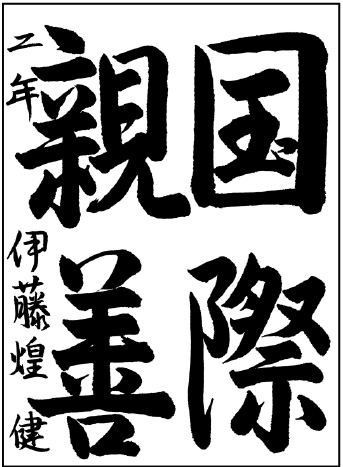 国際
親善
二年 伊藤煌健